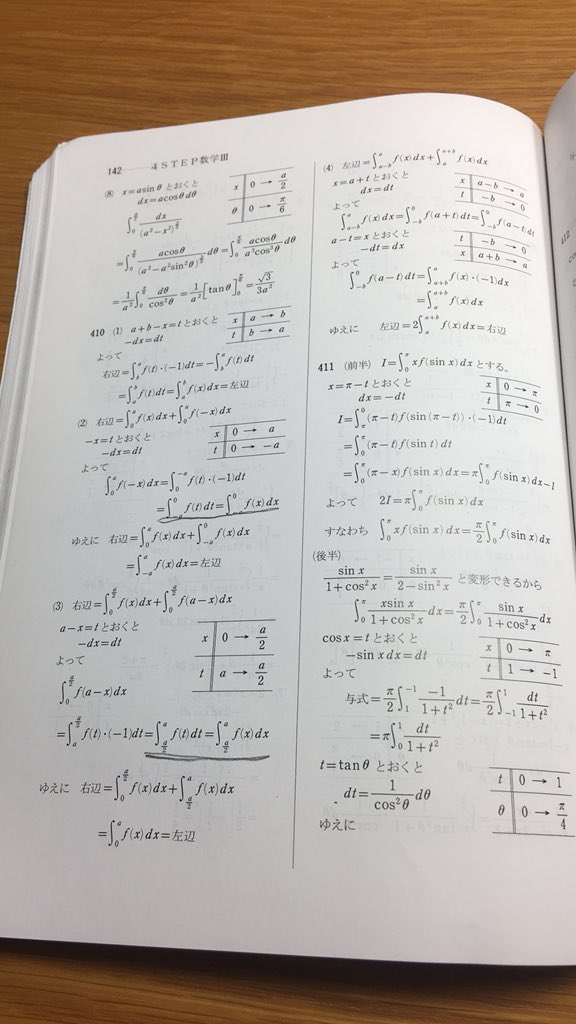 142 4STEP数学Ⅲ
(8) x=asinθ とおくと
dx=acosθdθ
x | 0 → a/2
θ | 0 → π/6
∫_0^{a/2} dx/(a²−x²)^{3/2}
=∫_0^{π/6} acosθ/(a²−a²sin²θ)^{3/2} dθ=∫_0^{π/6} acosθ/(a³cos³θ) dθ
=1/a² ∫_0^{π/6} dθ/cos²θ=1/a² [tanθ]_0^{π/6}=√3/(3a²)
410 (1) a+b−x=t とおくと
−dx=dt
x | a → b
t | b → a
よって
右辺=∫_b^a f(t)・(−1)dt=−∫_b^a f(t)dt
=∫_a^b f(t)dt=∫_a^b f(x)dx=左辺
(2) 右辺=∫_0^a f(x)dx+∫_0^a f(−x)dx
−x=t とおくと
−dx=dt
x | 0 → a
t | 0 → −a
よって
∫_0^a f(−x)dx=∫_0^{−a} f(t)・(−1)dt
=∫_{−a}^0 f(t)dt=∫_{−a}^0 f(x)dx
ゆえに 右辺=∫_0^a f(x)dx+∫_{−a}^0 f(x)dx
=∫_{−a}^a f(x)dx=左辺
(3) 右辺=∫_0^{a/2} f(x)dx+∫_0^{a/2} f(a−x)dx
a−x=t とおくと
−dx=dt
x | 0 → a/2
t | a → a/2
よって
∫_0^{a/2} f(a−x)dx
=∫_a^{a/2} f(t)・(−1)dt=∫_{a/2}^a f(t)dt=∫_{a/2}^a f(x)dx
ゆえに 右辺=∫_0^{a/2} f(x)dx+∫_{a/2}^a f(x)dx
=∫_0^a f(x)dx=左辺
(4) 左辺=∫_{a−b}^a f(x)dx+∫_a^{a+b} f(x)dx
x=a+t とおくと
dx=dt
x | a−b → a
t | −b → 0
よって
∫_{a−b}^a f(x)dx=∫_{−b}^0 f(a+t)dt=∫_{−b}^0 f(a−t)dt
a−t=x とおくと
−dt=dx
t | −b → 0
x | a+b → a
よって
∫_{−b}^0 f(a−t)dt=∫_{a+b}^a f(x)・(−1)dx
=∫_a^{a+b} f(x)dx
ゆえに 左辺=2∫_a^{a+b} f(x)dx=右辺
411 (前半) I=∫_0^π xf(sin x)dx とする。
x=π−t とおくと
dx=−dt
x | 0 → π
t | π → 0
I=∫_π^0 (π−t)f(sin(π−t))・(−1)dt
=∫_0^π (π−t)f(sin t)dt
=∫_0^π (π−x)f(sin x)dx=π∫_0^π f(sin x)dx−I
よって 2I=π∫_0^π f(sin x)dx
すなわち ∫_0^π xf(sin x)dx=π/2 ∫_0^π f(sin x)dx
(後半)
sin x/(1+cos²x)=sin x/(2−sin²x) と変形できるから
∫_0^π xsin x/(1+cos²x) dx=π/2 ∫_0^π sin x/(1+cos²x) dx
cos x=t とおくと
−sin x dx=dt
x | 0 → π
t | 1 → −1
よって
与式=π/2 ∫_1^{−1} −1/(1+t²) dt=π/2 ∫_{−1}^1 dt/(1+t²)
=π∫_0^1 dt/(1+t²)
t=tanθ とおくと
dt=1/cos²θ dθ
t | 0 → 1
θ | 0 → π/4
ゆえに